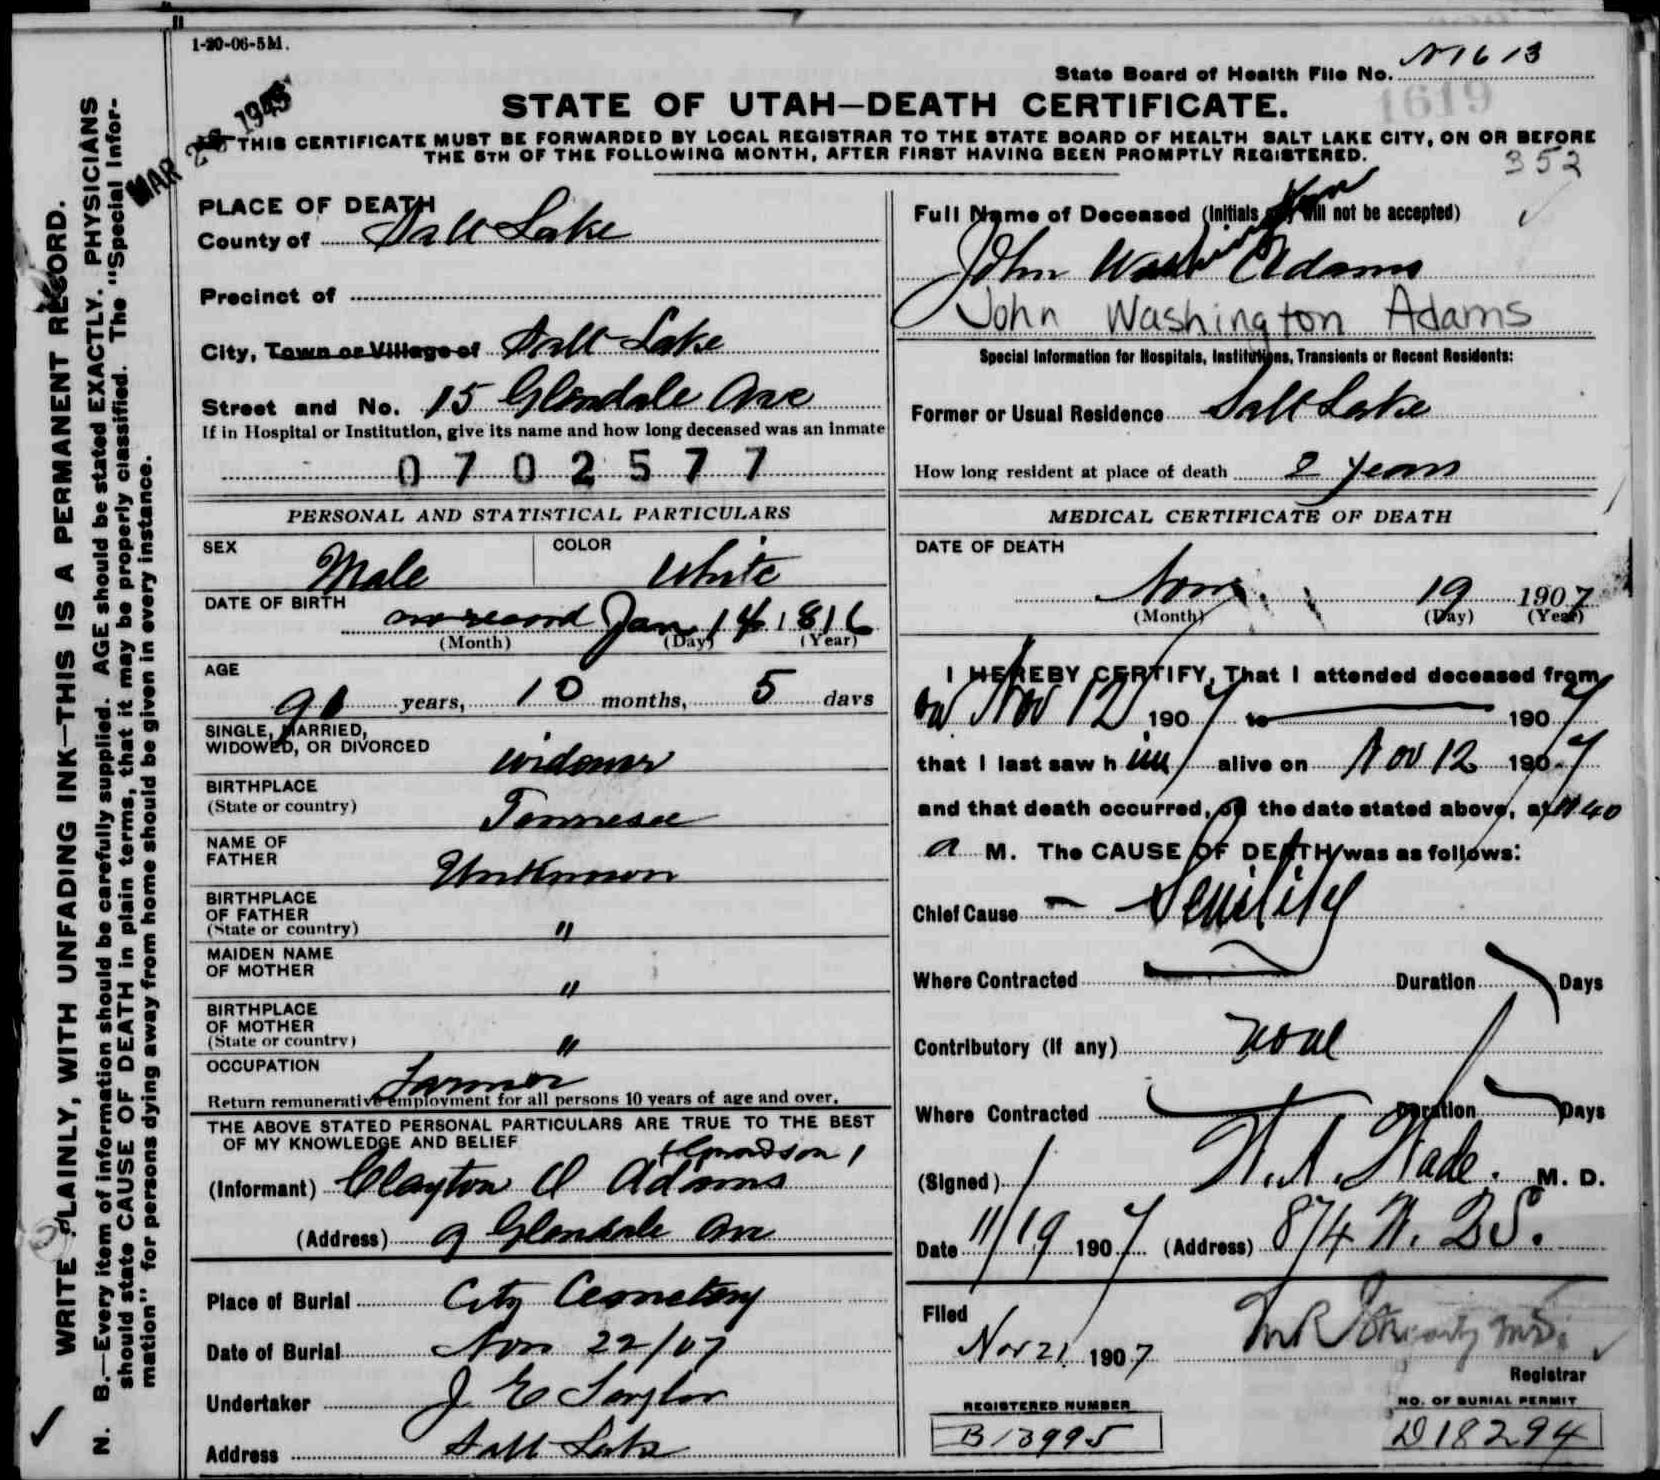 1-20-06-5M.
State Board of Health File No. N1613
1619
MAR 1945
STATE OF UTAH—DEATH CERTIFICATE.
THIS CERTIFICATE MUST BE FORWARDED BY LOCAL REGISTRAR TO THE STATE BOARD OF HEALTH SALT LAKE CITY, ON OR BEFORE
THE 5TH OF THE FOLLOWING MONTH, AFTER FIRST HAVING BEEN PROMPTLY REGISTERED.
352
WRITE PLAINLY, WITH UNFADING INK—THIS IS A PERMANENT RECORD.
N. B.—Every item of information should be carefully supplied. AGE should be stated EXACTLY. PHYSICIANS
should state CAUSE OF DEATH in plain terms, that it may be properly classified. The "Special Infor-
mation" for persons dying away from home should be given in every instance.
PLACE OF DEATH
County of Salt Lake
Precinct of
City, Town or Village of Salt Lake
Street and No. 15 Glendale Ave
If in Hospital or Institution, give its name and how long deceased was an inmate
0702577
Full Name of Deceased (Initials will not be accepted)
John Washington Adams
John Washington Adams
Special Information for Hospitals, Institutions, Transients or Recent Residents:
Former or Usual Residence Salt Lake
How long resident at place of death 2 years
PERSONAL AND STATISTICAL PARTICULARS
SEX Male COLOR White
DATE OF BIRTH
no record Jan 14 1816
(Month) (Day) (Year)
AGE
91 years, 10 months, 5 days
SINGLE, MARRIED,
WIDOWED, OR DIVORCED widower
BIRTHPLACE
(State or country) Tennesee
NAME OF
FATHER Unknown
BIRTHPLACE
OF FATHER
(State or country) "
MAIDEN NAME
OF MOTHER "
BIRTHPLACE
OF MOTHER
(State or country) "
OCCUPATION Farmer
Return remunerative employment for all persons 10 years of age and over.
THE ABOVE STATED PERSONAL PARTICULARS ARE TRUE TO THE BEST
OF MY KNOWLEDGE AND BELIEF
(Informant) Clayton O Adams
(Address) 9 Glendale Ave
Place of Burial City Cemetery
Date of Burial Nov 22/07
Undertaker J E Taylor
Address Salt Lake
MEDICAL CERTIFICATE OF DEATH
DATE OF DEATH
Nov 19 1907
(Month) (Day) (Year)
I HEREBY CERTIFY, That I attended deceased from
on Nov 12 1907 to 1907
that I last saw him alive on Nov 12 1907
and that death occurred, on the date stated above, at 11.40
a M. The CAUSE OF DEATH was as follows:
Chief Cause — Senility
Where Contracted Duration Days
Contributory (If any) none
Where Contracted Duration Days
(Signed) Wade. M. D.
Date 11/19 1907 (Address) 874
Filed
Nov 21 1907
Registrar
REGISTERED NUMBER
B13995
NO. OF BURIAL PERMIT
D18294